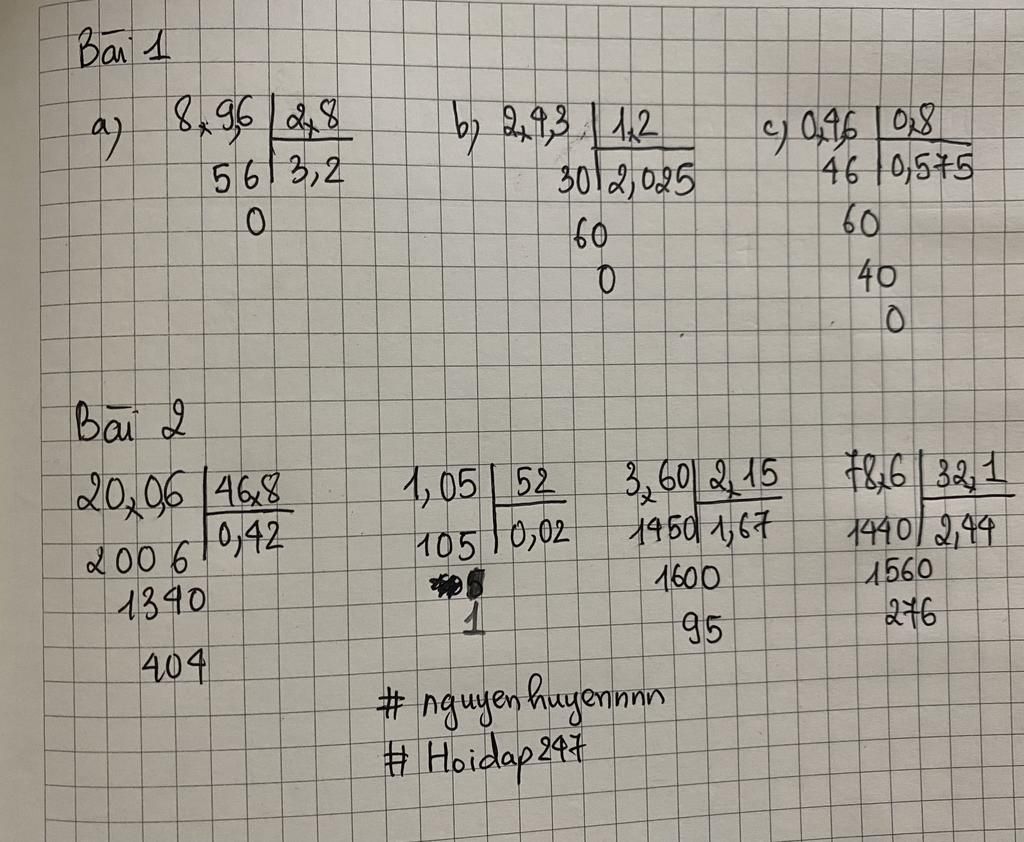 Bài 1
a) 8,9,6 | 2,8 b) 2,4,3 | 1,2 c) 0,4,6 | 0,8
56 | 3,2 30 | 2,025 46 | 0,575
0 60 60
0 40
0
Bài 2
20,0,6 | 46,8 1,05 | 52 3,60 | 2,15 78,6 | 32,1
2006 | 0,42 105 | 0,02 1450 | 1,67 1440 | 2,44
1340 1 1600 1560
404 95 276
# nguyenhuyennnn
# Hoidap247